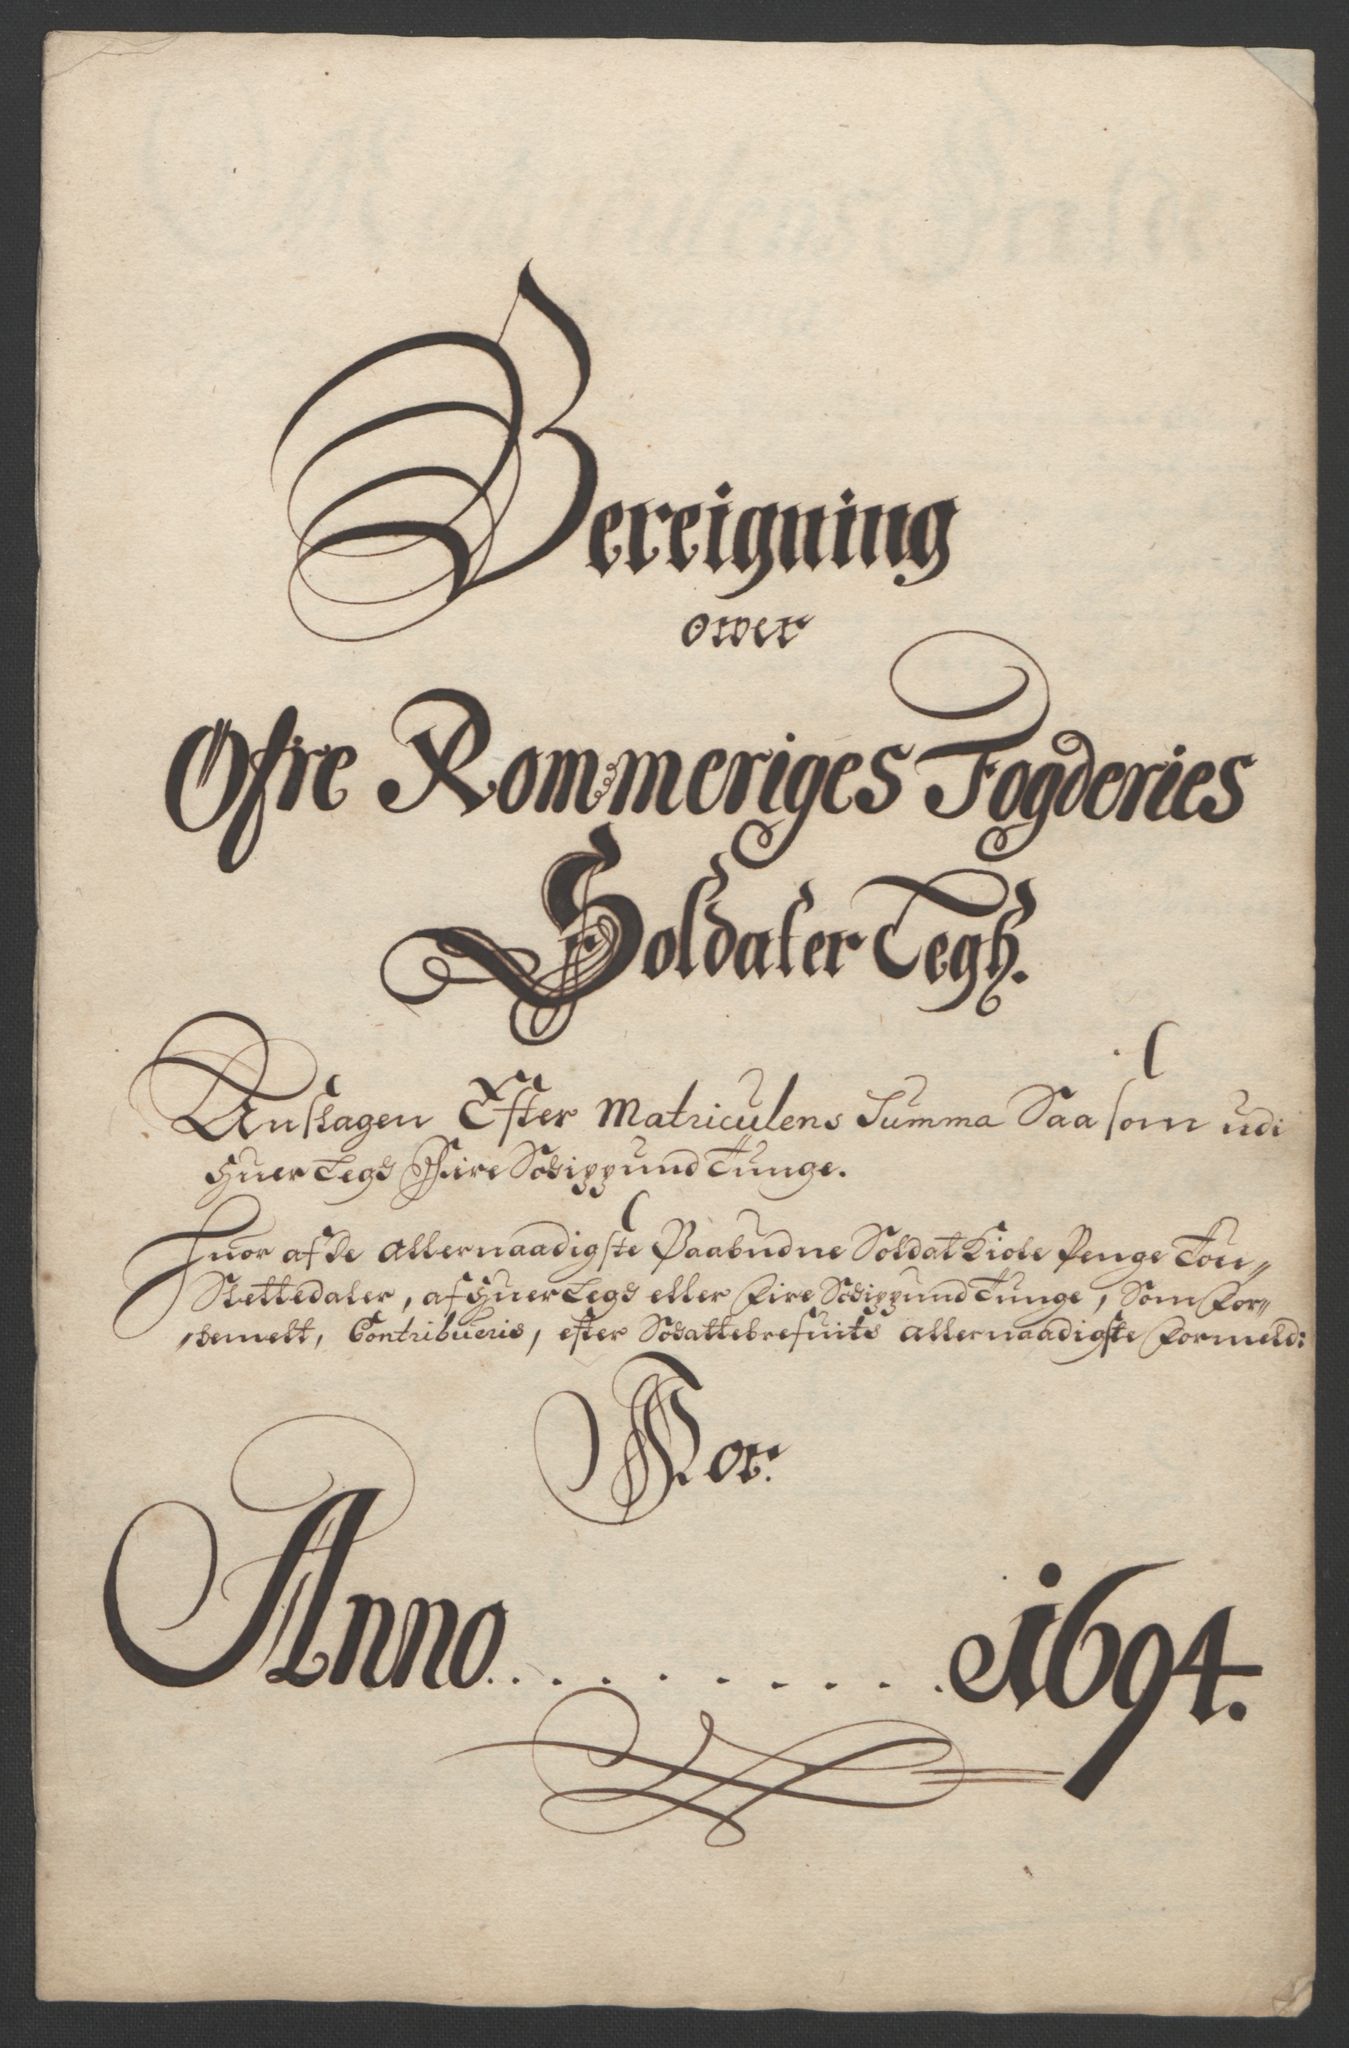 Bereigning
ower
Øfre Rommeriges Fogderies
Soldater Legh.
Anslagen Efter Matriculens Summa Saa som udi
huer Legd Fiire Schippund Tunge.
Huor af de allernaadigste Paabudne Soldat Kiole Penge Tou
Slettedaler, af huer Legd eller Fire Schippund Tunge, Som For
bemelt, Contribueris, efter Schattebrefuits allernaadigste Formeld:
For.
Anno.......... 1694.